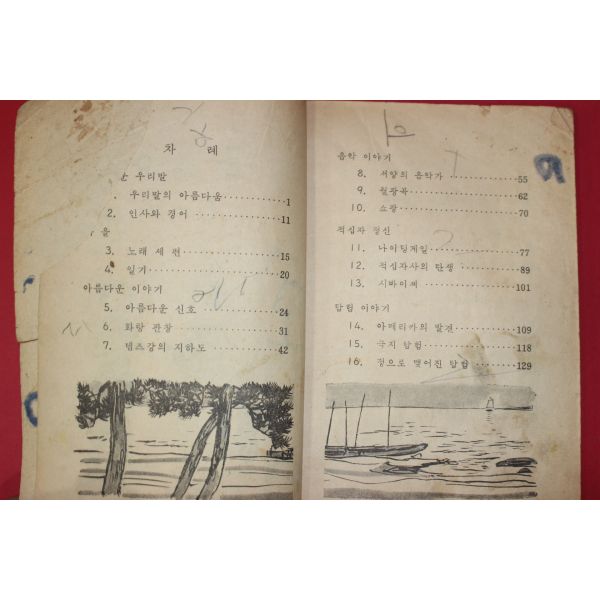 차 례
우리말
. 우리말의 아름다움 1
2. 인사와 경어 11
을
3. 노래 세 편 15
4. 일기 20
아름다운 이야기
5. 아름다운 신호 24
6. 화랑 관창 31
7. 템즈강의 지하도 42
음악 이야기
8. 서양의 음악가 55
9. 월광곡 62
10. 쇼팡 70
적십자 정신
11. 나이팅게일 77
12. 적십자사의 탄생 89
13. 시바이쩌 101
탐험 이야기
14. 아메리카의 발견 109
15. 극지 탐험 118
16. 정으로 맺어진 탐험 129